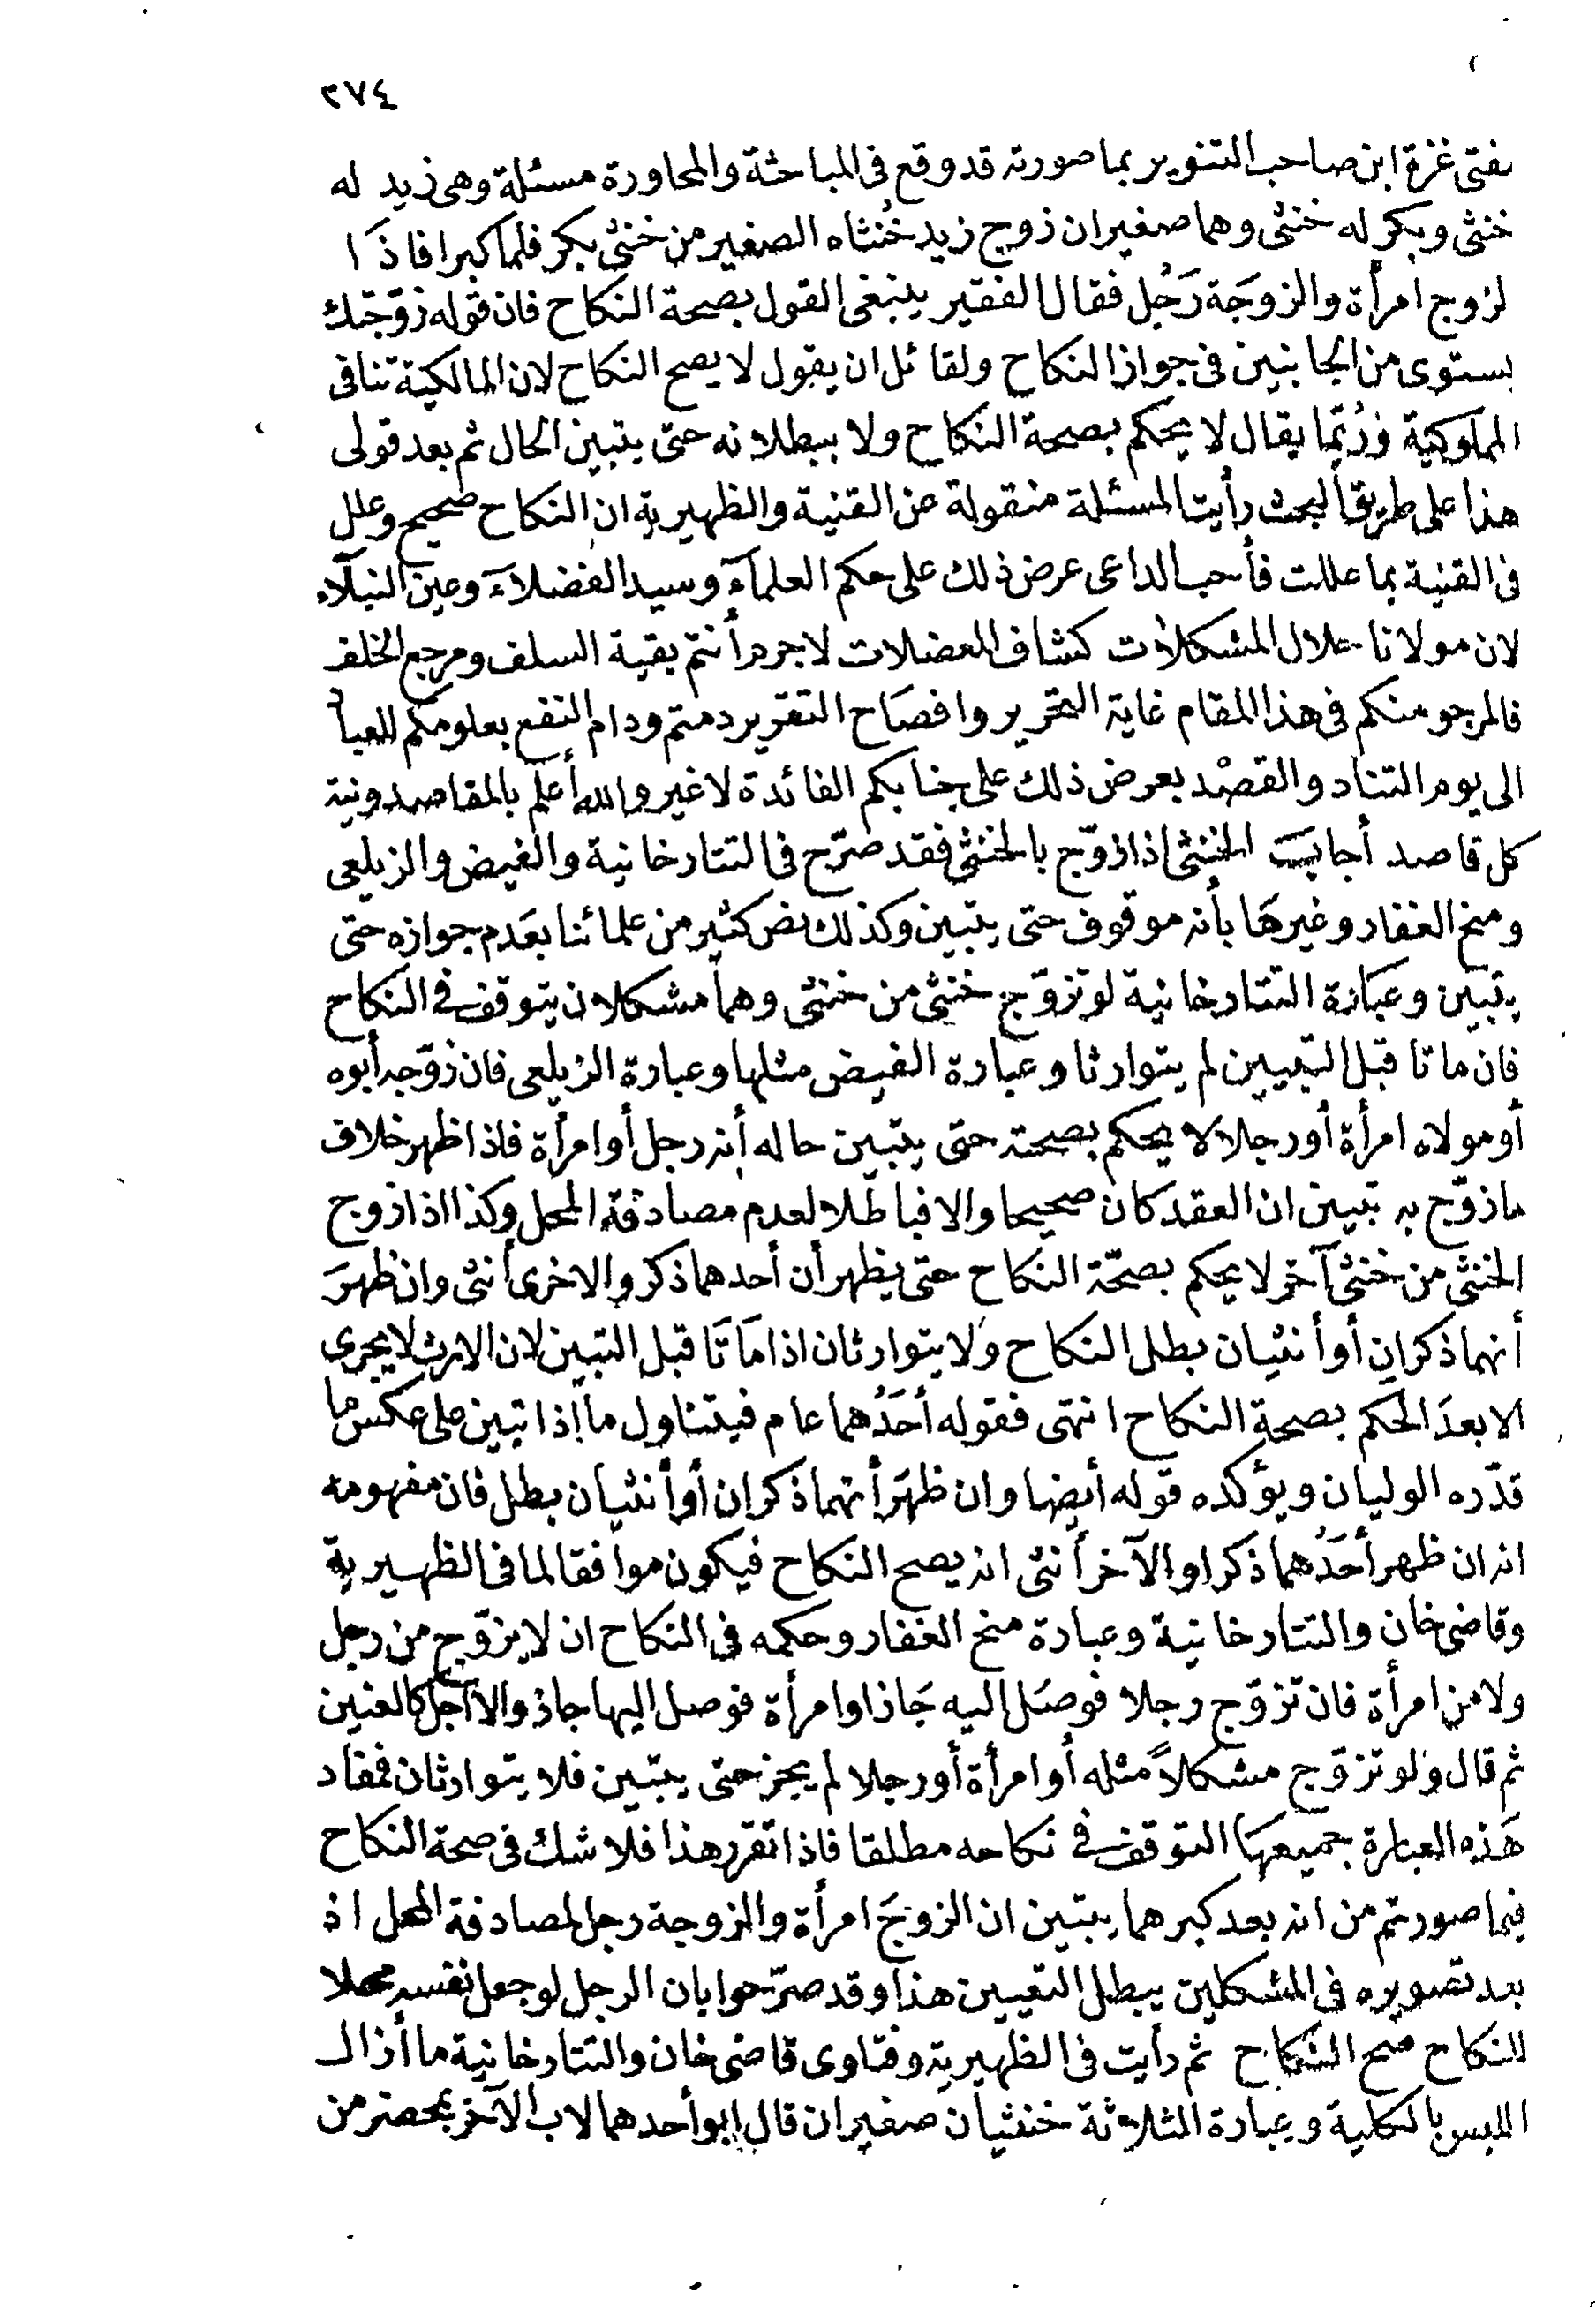 ٢٧٤
مفتى غزة ابن صاحب التنوير بما صورته قد وقع فى المباحثة والمحاورة مسئلة وهى زيد له
خنثى وبكر له خنثى وهما صغيران زوج زيد خُنثاه الصغير من خنثى بكر فلما كبرا فاذا
لزوج امرأة والزوجَة رَجُل فقال الفقير ينبغى القول بصحة النكاح فان قوله زوّجتك
يستوى من الجانبين فى جواز النكاح ولقائل ان يقول لا يصح النكاح لان المالكية تنافى
المملوكيّة ورُبّما يقال لا يحكم بصحة النكاح ولا ببطلانه حتى يتبين الحال ثم بعد قولى
هذا على طريق البحث رأيت المسئلة منقولة عن القنية والظهيرية ان النكاح صحيح وعلل
فى القنية بما عللت فأحب الداعى عرض ذلك على حكم العلمآء وسيد الفضلآء وعين النبلآء
لان مولانا حلال المشكلات كشاف المعضلات لا جرم أنتم بقية السلف ومرجع الخلف
فالمرجو منكم فى هذا المقام غاية التحرير وافصاح التقرير دمتم ودام النفع بعلومكم للعبا
الى يوم التناد والقصْد بعرض ذلك على جنابكم الفائدة لا غير والله أعلم بالمقاصد ونية
كل قاصد أجابت الخنثى اذا زوّج بالخنثى فقد صرّح فى التتارخانية والفيض والزيلعى
ومنح الغفار وغيرهَا بأنه موقوف حتى يتبين وكذلك نص كثير من علمائنا بعَدم جوازه حتى
يتبين وعبارة التتارخانية لو تزوّج خنثى من خنثى وهما مشكلان يتوقف فى النكاح
فان ماتا قبل التبيين لم يتوارثا وعبارة الفيض مثلها وعبارة الزيلعى فان زوّجه أبوه
أو مولاه امرأة أو رجلا لا يحكم بصحته حتى يتبين حاله أنه رجل أو امرأة فاذا ظهر خلاف
ما زوّج به تبين ان العقد كان صحيحا والا فباطلا لعدم مصادفة المحل وكذا اذا زوج
الخنثى من خنثى آخر لا يحكم بصحّة النكاح حتى يظهر أن أحدهما ذكر والاخرى أنثى وان ظهرَ
أنهما ذكران أو أنثيان بطل النكاح ولا يتوارثان اذا ماتا قبل التبين لان الارث لا يجرى
الا بعدَ الحكم بصحة النكاح انتهى فقوله أحَدُهما عام فيتناول ما إذا تبين على عكس ما
قدّره الوليان ويؤكده قوله أيضا وان ظهرَ أنهما ذكران أو أنثيان بطل فان مفهومه
انه ان ظهر أحَدُهما ذكرا والآخر أنثى انه يصح النكاح فيكون موافقا لما فى الظهيرية
وقاضى خان والتتارخانية وعبارة منح الغفار وحكمه فى النكاح ان لا يزوّج من رجل
ولا من امرأة فان تزوّج رجلا فوصَل اليه جَاز او امرأة فوصل اليها جاز والا أجل كالعنين
ثم قال ولو تزوّج مشكلاً مثله أو امرأة أو رجلا لم يجز حتى يتبين فلا يتوارثان فمفاد
هَذه العبارة جميعهَا التوقف فى نكاحه مطلقا فاذا تقرر هذا فلا شك فى صحة النكاح
فيما صورتم من انه بعد كبرهما يتبين ان الزوجَ امرأة والزوجة رجل لمصادفة المحل اذ
بعد تصويره فى المشكلين يبطل التعيين هذا وقد صرّحوا بان الرجل لو جعل نفسه محلا
للنكاح صح النكاح ثم رأيت فى الظهيرية وفتاوى قاضى خان والتتارخانية ما أزال
اللبس بالكلية وعبارة الثلاثة خنثيان صغيران قال ابو أحدهما لاب الآخر بمحضر من